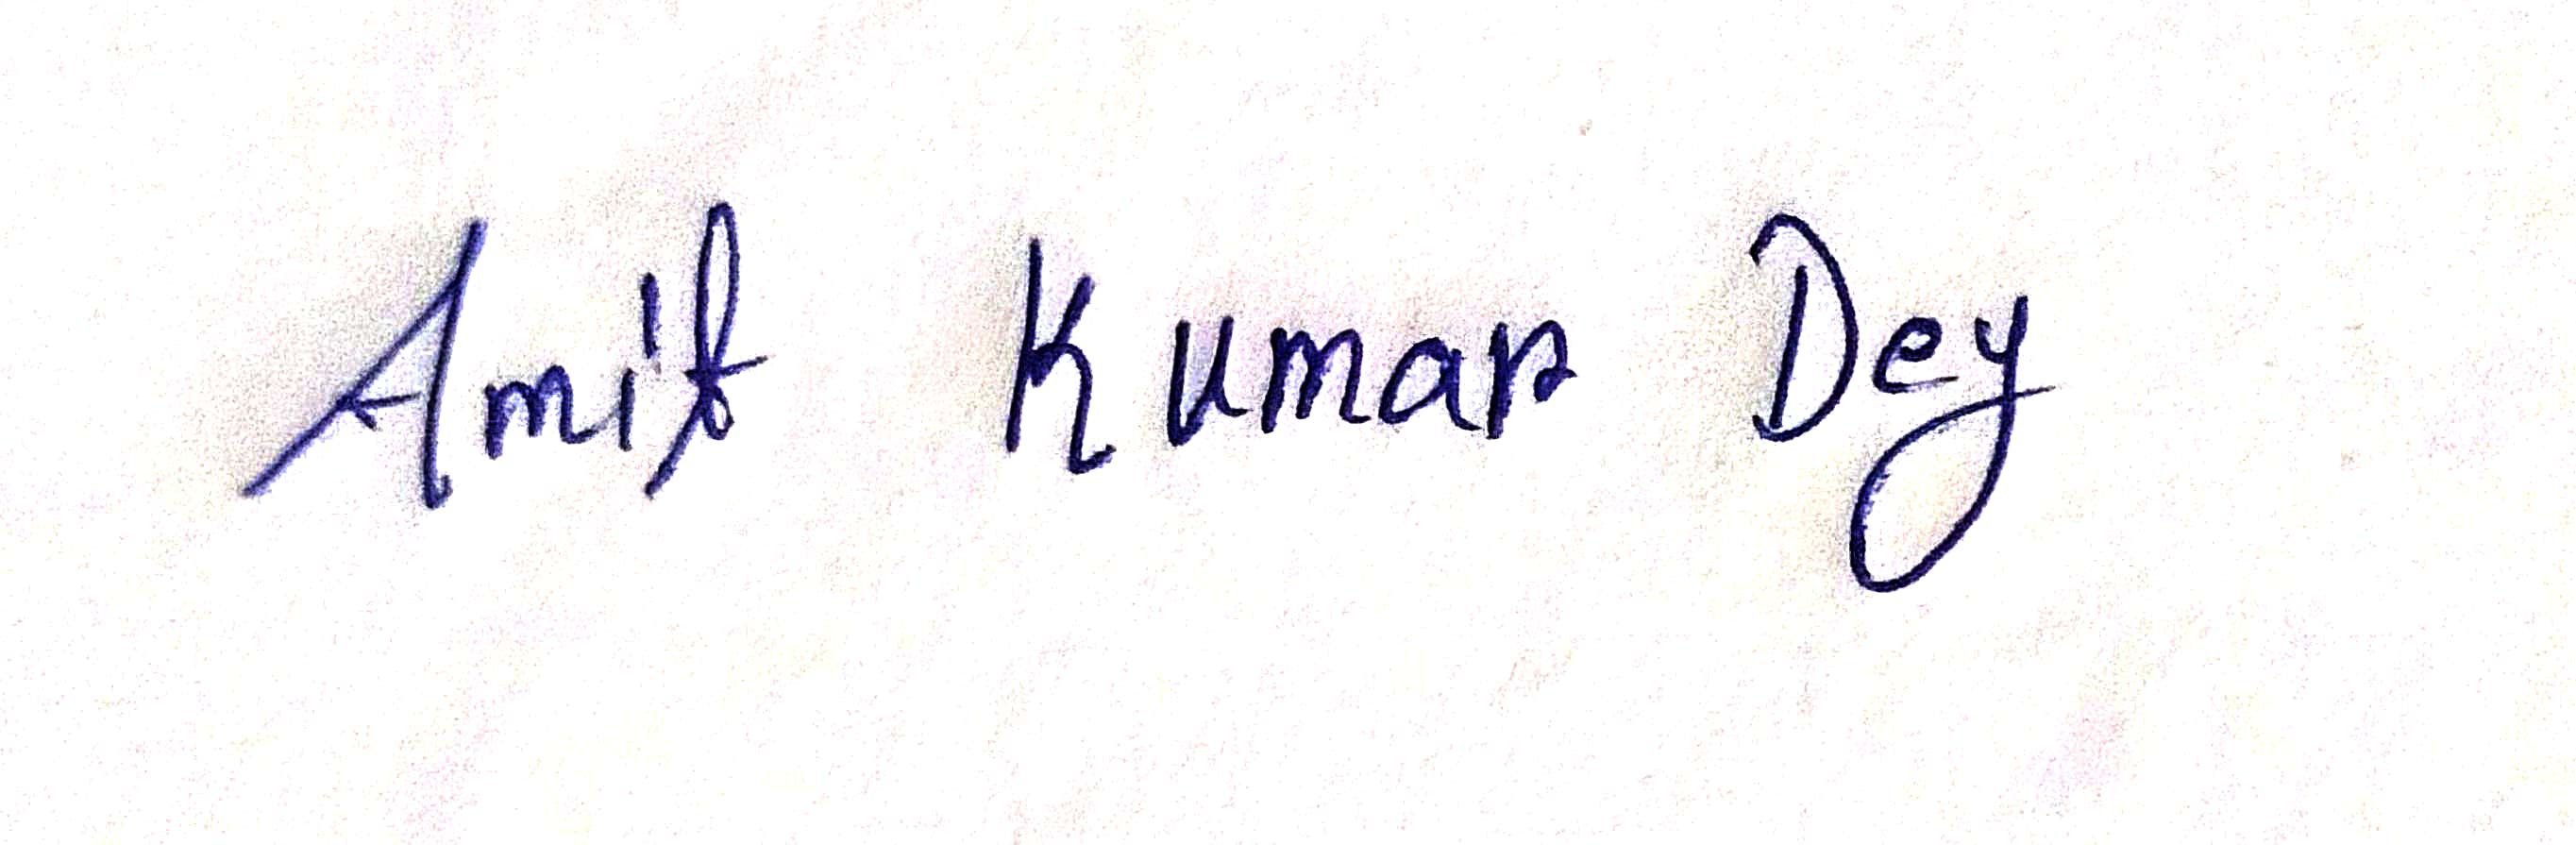 Amit Kumar Dey